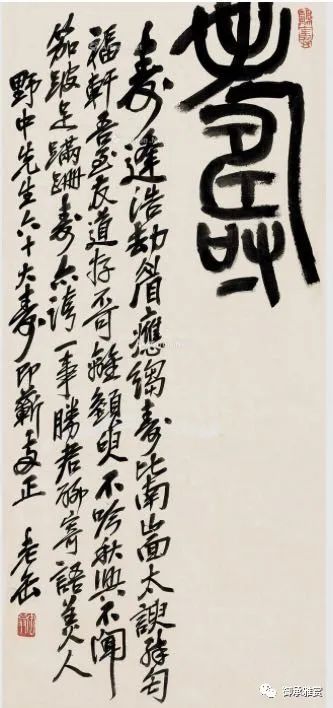 壽
壽逢浩劫眉應縐壽比南山面太諛
福軒吾至友道存不可離不吟秋興不聞
笳跛足蹣跚壽亦誇一事勝君聊寄語美人
野中先生六十大壽即蘄正 老缶
御承雅赏